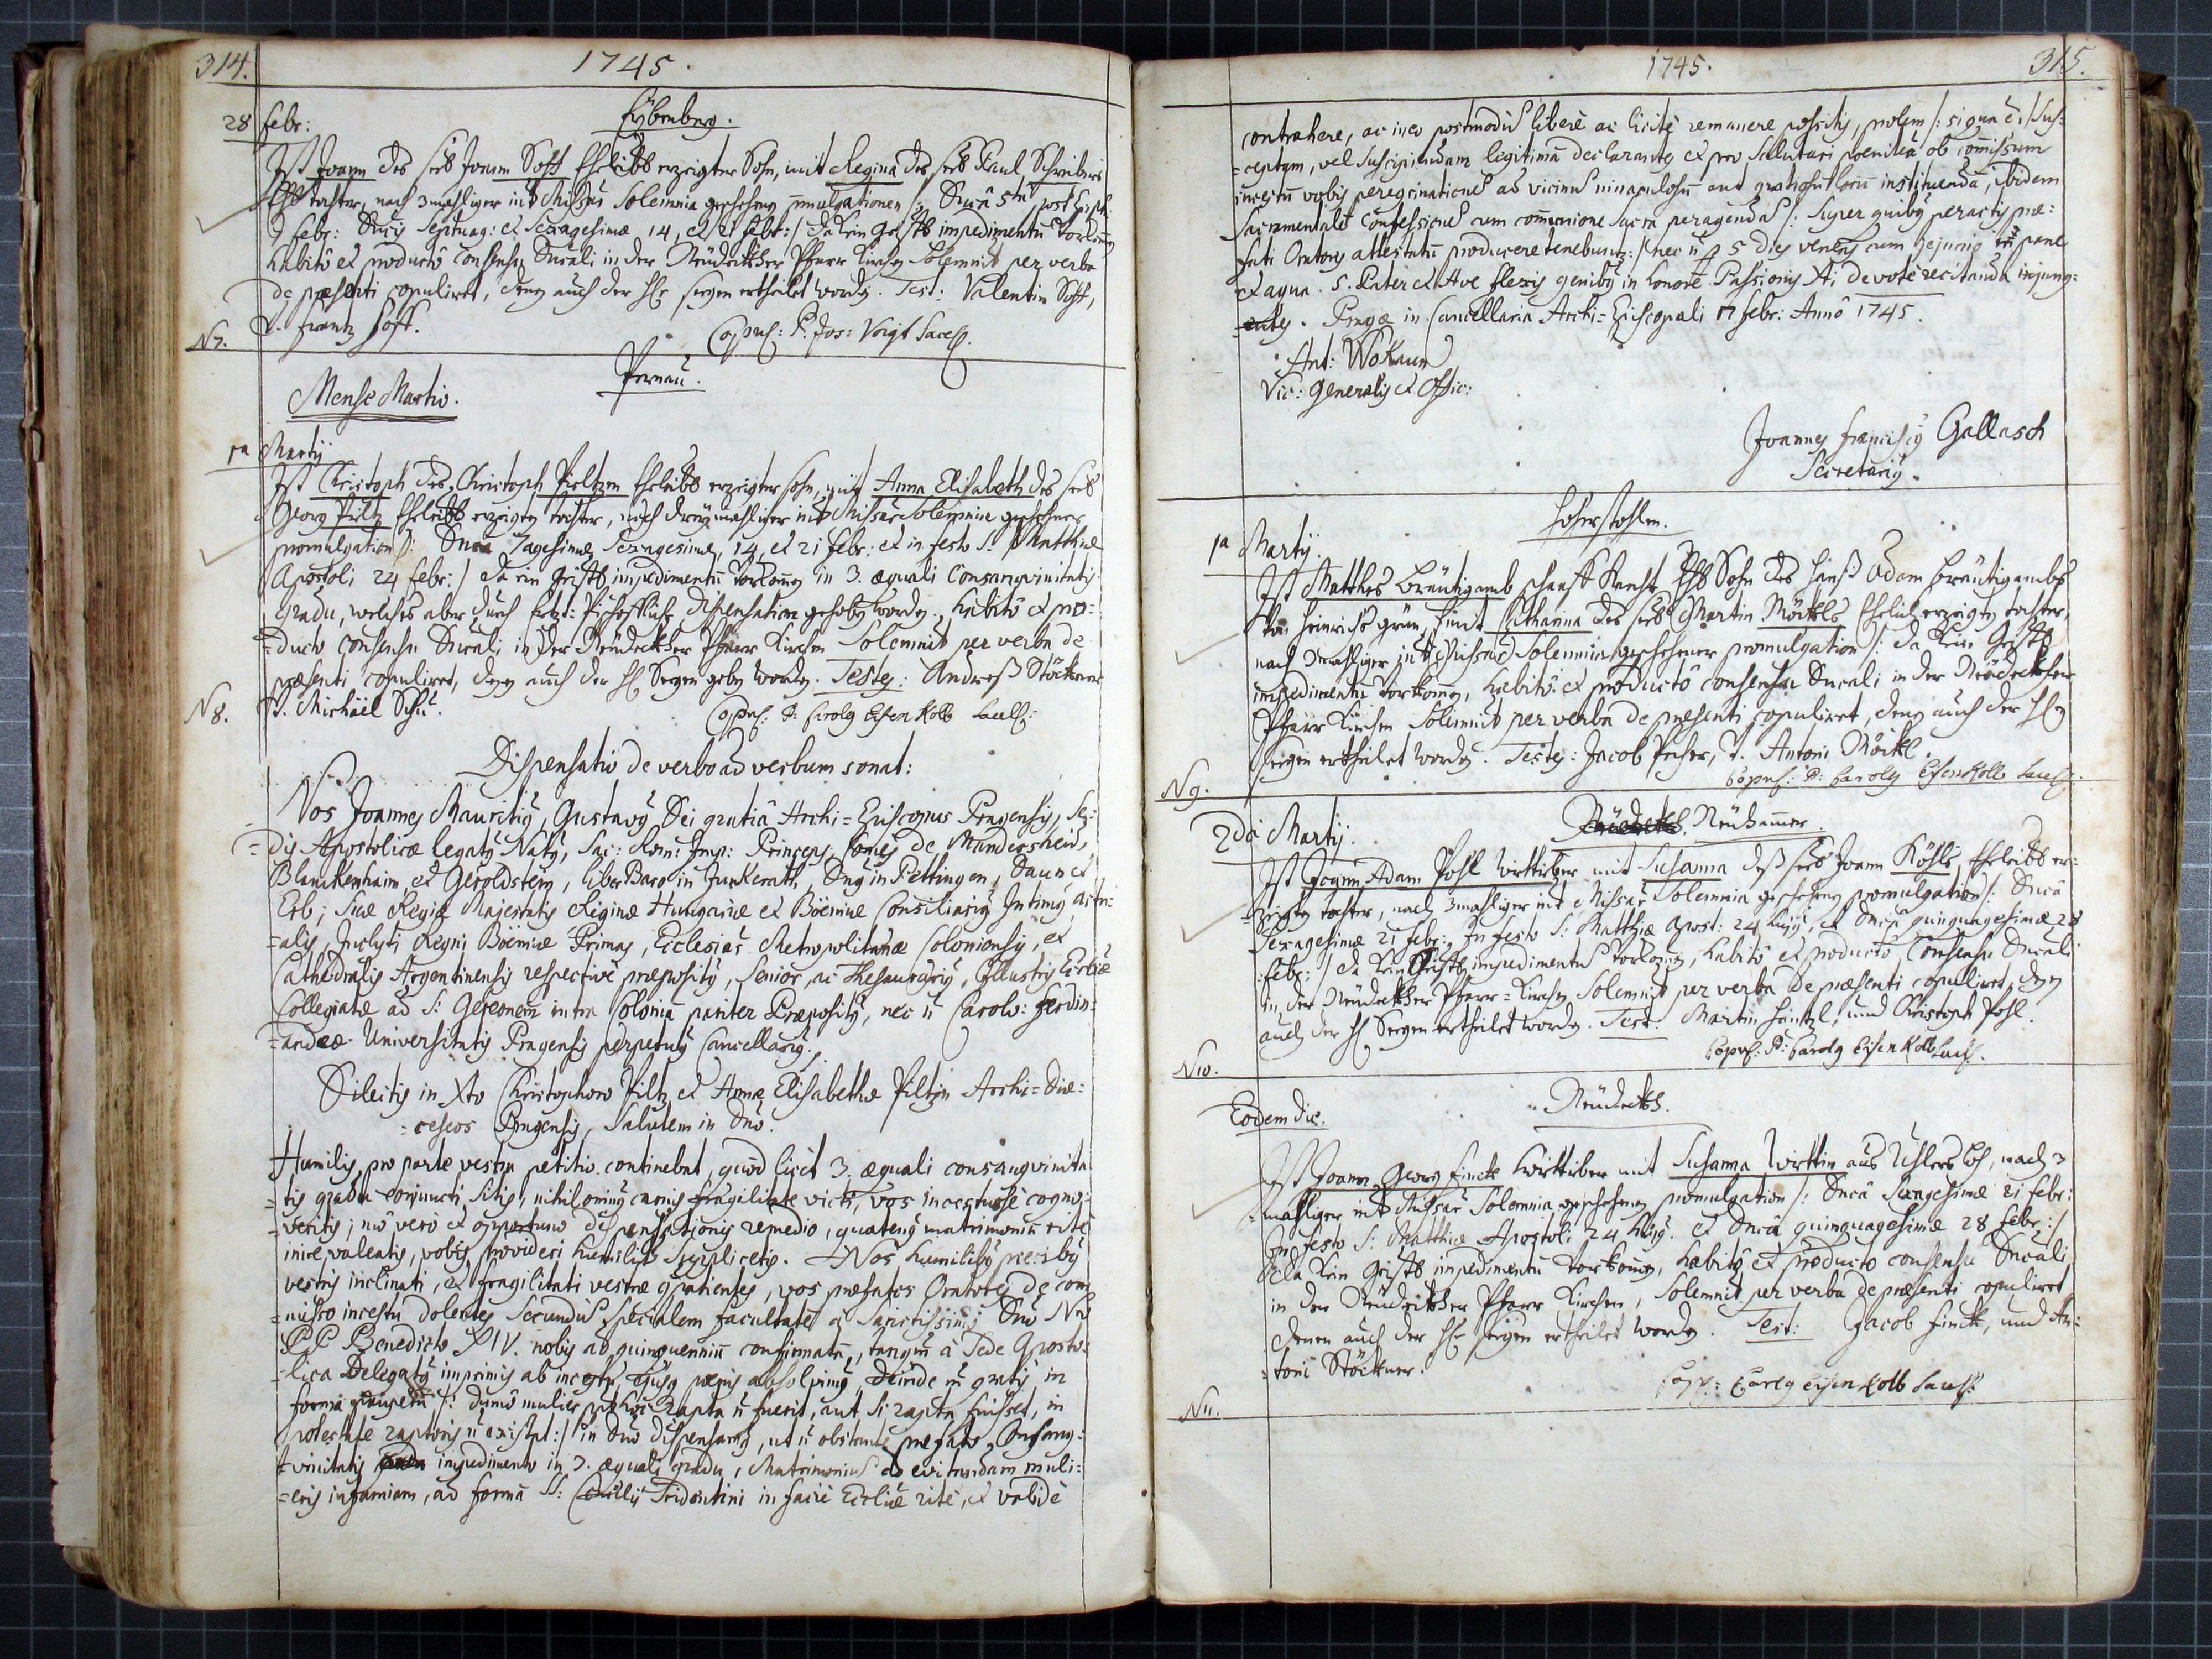 314.
1745.
28 febr:
Eybenberg.
Ist Joann des seel Joann Soff Ehrleibl erzeigter Sohn, mit Regina des seel Paul Schreibers
tochter, nach 3mahliger intr Missar Solemnia geschehenen promulgationen /: Dnica 5ta post Epiph:
7 febr: Dnicis Septuag: et Sexagesimae 14, et 21 febr:/ da kein Geistl impedimentu vorkomen
habito et producto consensu Dnicali in der Neudeckher Pfarr Kirchen Solemnit per verba
de praesenti copuliret, denen auch der Hl: seegen ertheilet worden. Test: Valentin Soff,
V. Frantz Soff.
Copus: P. Jos: Voigt Sacell.
N 7.
Pernau.
Mense Martio.
1a Martij
Ist Christoph des Christoph Piltzen Ehrleibl erzeigter sohn, mit Anna Elisabeth des seel
Georg Piltz Ehrleibl erzeigten tochter, nach dreymahliger intr Missar Solemnia geschehener
promulgation /: Dnica 7agesimae, Sexagesimae, 14, et 21 febr: et in festo S: Matthiae
Apostoli 24 febr:/ da ein Geistl impedimentu vorkomen in 3. aequali Consanguinitatis
Gradu, welches aber durch Ertz-Bischoffliche Dispensation gehoben worden, habito et pro-
=ducto consensu Dnicali in der Neudeckher Pfarr Kirchen Solemnit per verba de
praesenti copuliret, denen auch der Hl Seegen geben worden. Testes: Andreß Stöckner
V. Michäel Schu.
Copus: P: Carolus Eisenkolb Sacell:
N 8.
Dispensatio de verbo ad verbum sonat:
Nos Joannes Mauritius, Gustavus, Dei gratia Archi=Episcopus Pragensis, Se=
=dis Apostolicae legatus Natus, Sac: Rom: Imp: Princeps. Comes de Manderscheid,
Blanckenhaim, et Geroldstein, liber Baro in Junkerath, Dnus in Pettingen, Daun et
Erb; Suae Regiae Majestatis Reginae Hungariae et Böemiae Consiliarius Intimus actu=
=alis, Inclyti Regni Böemiae Primas, Ecclesiae Metropolitanae Coloniensis, et
Cathedralis Argentinensis respective praepositus, Senior, ac Thesaurarius, Illustris Ecclae
Collegiatae ad S: Gereonem intra Colonia pariter Praepositus, nec n Carolo: Ferdin=
=andeae Universitatis Pragensis perpetuus Cancellarius.
Dilectis in Xto Christophoro Piltz et Annae Elisabethae Piltzin Archi=Dioe=
=ceseos Pragensis, Salutem in Dno.
Humilis pro parte vestra petitio continebat, quod licet 3. aequali consanguinita
=tis gradu conjuncti sitis, nihilominus carnis fragilitate victi, vos incestuose cogno=
=veritis; nuc vero et opportuno dispensationis remedio, quatenus matrimoniu rite
inire valeatis, vobis provideri humilit supplicetis. Nos humilibus precibus
vestris inclinati, et fragilitati vestrae compatientes, vos praefatos Oratores de com
=misso incestu dolentes Secundu specialem facultate a Sanctissimo Dno Nro
PP Benedicto XIV. nobis ad quinquenniu confirmata, tanqua a Sede Aposto=
=lica Delegatus imprimis ab incestu ejusq poenis absolvimus, deinde gratis in
forma pauperu /: dumo mulier rapta n fuerit, aut si rapta fuisset, in
potestate raptoris n existat:/ in Dno dispensamus, ut n obstante praefato Consang=
=vinitatis impedimento in 3. aequali gradu, Matrimoniu ad evitandam muli=
=eris infamiam, ad forma SS: Concilii Tridentini in facie Eccliae rite, et valide
1745.
315.
contrahere, ac in eo postmodu libere ac licite remanere possitis, prolem /: si qua e:/ sus=
=ceptam, vel suscipiendam legitima declarantes et pro salutari poenitea ob comissum
incestu vobis peregrinatione ad vicinu miraculosu aut gratiosu locu instituenda, ibidem
Sacramentale Confessione cum communione sacra peragenda /: super quibus peractis prae=
fati Oratores attestatu producere tenebuntur:/ nec n 5 dies veneris cum jejunio in pane
et aqua. 5. Pater et Ave flexis genibus in honore Passionis Xi devote recitanda injung=
=entes. Pragae in Cancellaria Archi=Episcopali 17 febr: Anno 1745.
Ant: Wokaun
Vic: Generalis et Offic:
Joannes Franciscus Gallasch
Secretarius.
Hoherstohlen.
1a Martij.
Ist Matthes Bräutigamb Schaaff Knecht Ehl Sohn des Hanß Adam Bräutigambs
von Heinrichs grün, sumt Catharina des seel Martin Möckls Ehrlich erzeigten tochter,
nach 3mahliger intr Missar Solemnia geschehener promulgation /: da kein Geistl
impedimentu vorkomen, habito et producto consensu Dnicali in der Neudeckher
Pfarr Kirchen Solemnit per verba de praesenti copuliret, denen auch der Hl
seegen ertheilet worden. Testes: Jacob Pecher, V. Antoni Möckl
Copus: P: Carolus Eisenkolb Sacell:
N 9.
2da Martij.
Neuhammer.
Ist Joann Adam Pohl Wittiber mit Susanna deß seel Joann Köhls Ehrleibl er=
=zeigten tochter, nach 3mahliger intr Missar Solemnia geschehenen promulgation /: Dnica
Sexagesimae 21 febr: In festo S: Matthiae Apost: 24 hujus, et Dnica quinquagesimae 28
febr:/ da kein Geistl impedimentu vorkomen, habito et producto Consensu Dnicali
in der Neudeckher Pfarr=Kirchen Solemnit per verba de praesenti copuliret, denen
auch der Hl Seegen ertheilet worden. Test: Martin Häntzl, und Christoph Pohl.
Copus: P: Carolus Eisenkolb Sacell.
N 10.
Neudeckh.
Eodem die.
Ist Joann Georg Finck Wittiber mit Susanna Wirttin aus Uhlersloh, nach 3
=mahliger intr Missar Solemnia geschehenen promulgation /: Dnica Sexagesimae 21 febr:
In festo S: Matthiae Apostoli 24 hujus. et Dnica quinquagesimae 28 febr:/
da kein Geistl impedimentu vorkomen, habito et producto consensu Dnicali
in der Neudeckher Pfarr Kirchen, Solemnit per verba de praesenti copuliret
denen auch der Hl: seegen ertheilet worden. Test: Jacob Finck, und An=
=toni Stöckner.
Cop: Carolus Eisenkolb Sacell:
N 11.